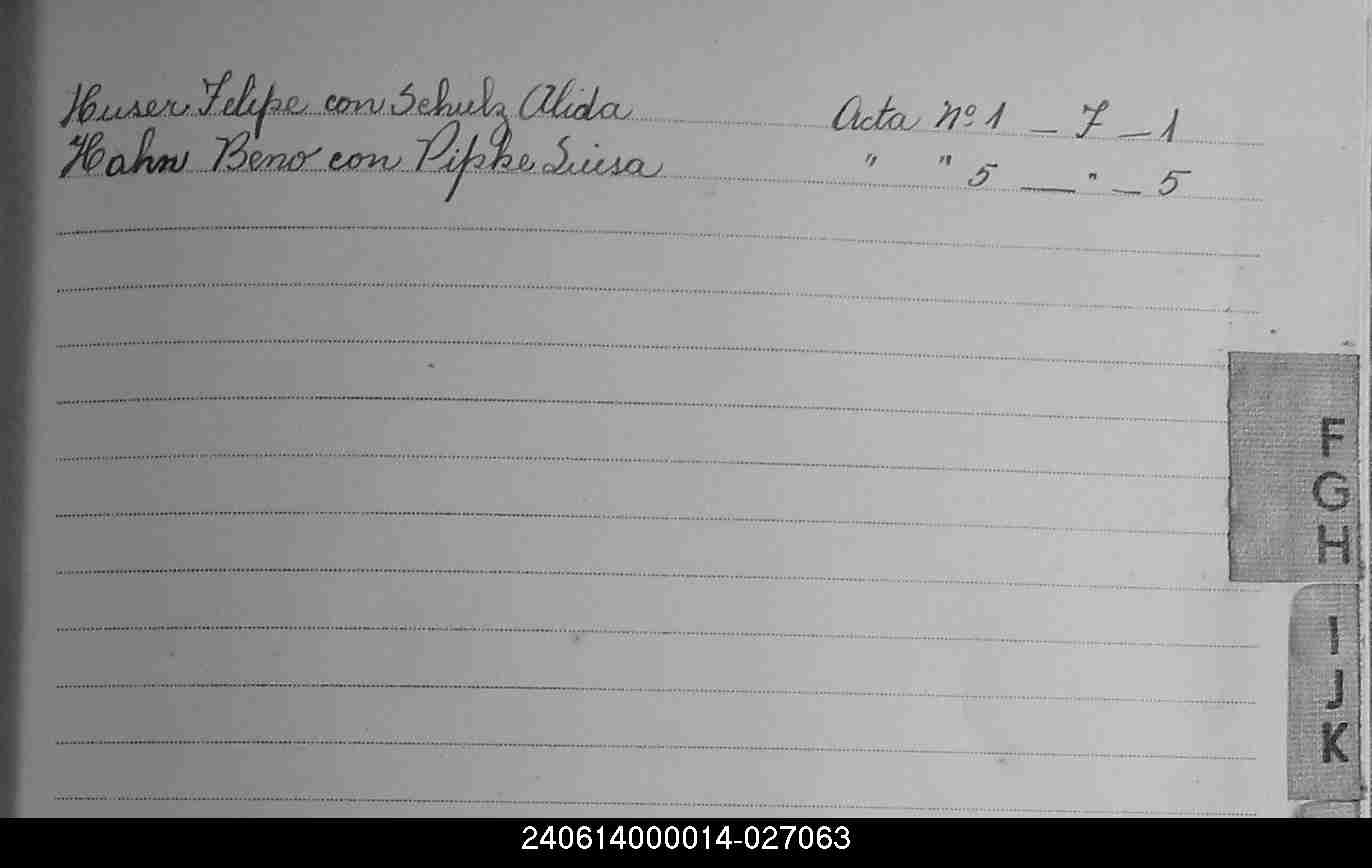 Huser Felipe con Schulz Alida Acta Nº 1 — F — 1
Hahn Beno con Pipke Luisa " " 5 — " — 5
F
G
H
I
J
K
240614000014-027063